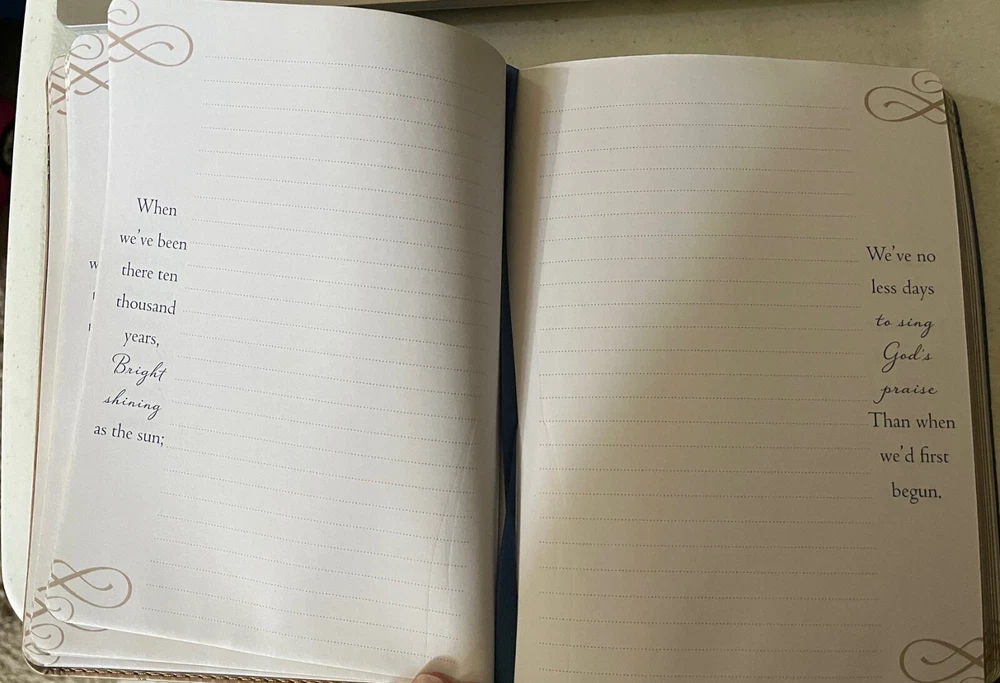 When
we've been
there ten
thousand
years,
Bright
shining
as the sun;
We've no
less days
to sing
God's
praise
Than when
we'd first
begun.